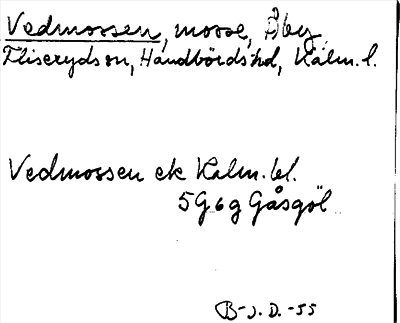 Vedmossen, mosse, Åby,
Fliseryds sn, Handbörds hd, Kalm. l.
Vedmossen ek Kalm. bl.
5G6g Gåsgöl
B-J.D.-55